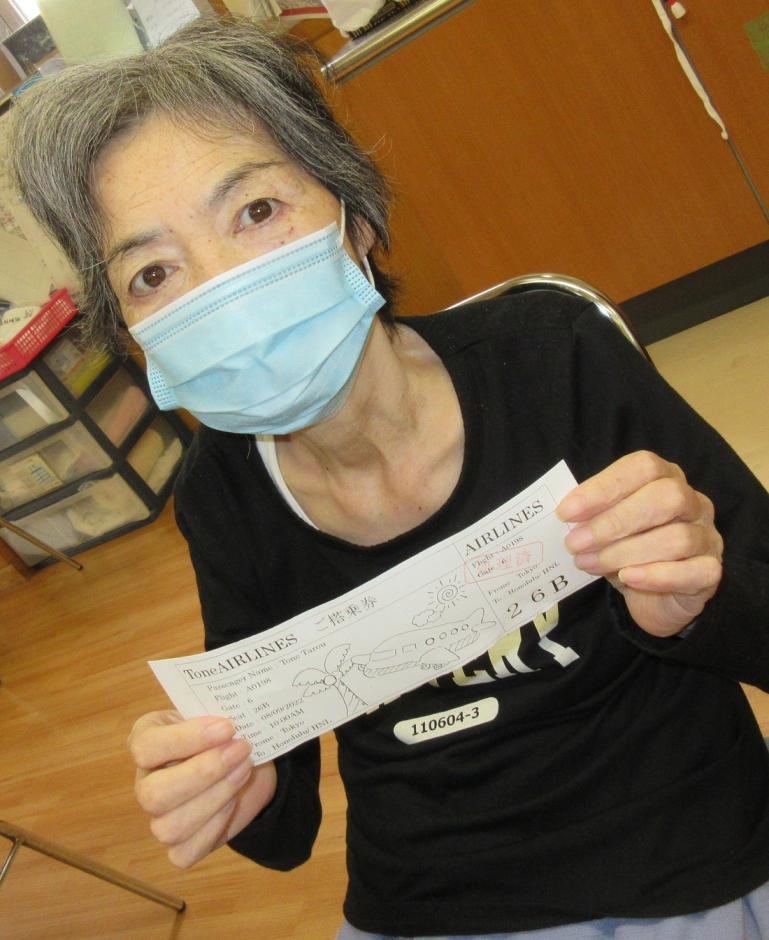 ToneAIRLINES ご搭乗券
Passenger Name Tone Tarou
Flight A0198
Gate 6
Seat 26B
Date 08/09/2022
Time 10:00AM
Frome Tokyo
To Honolulu/HNL
AIRLINES
Flight A0198
Gate 6
Frome Tokyo
To Honolulu/HNL
26B
110604-3